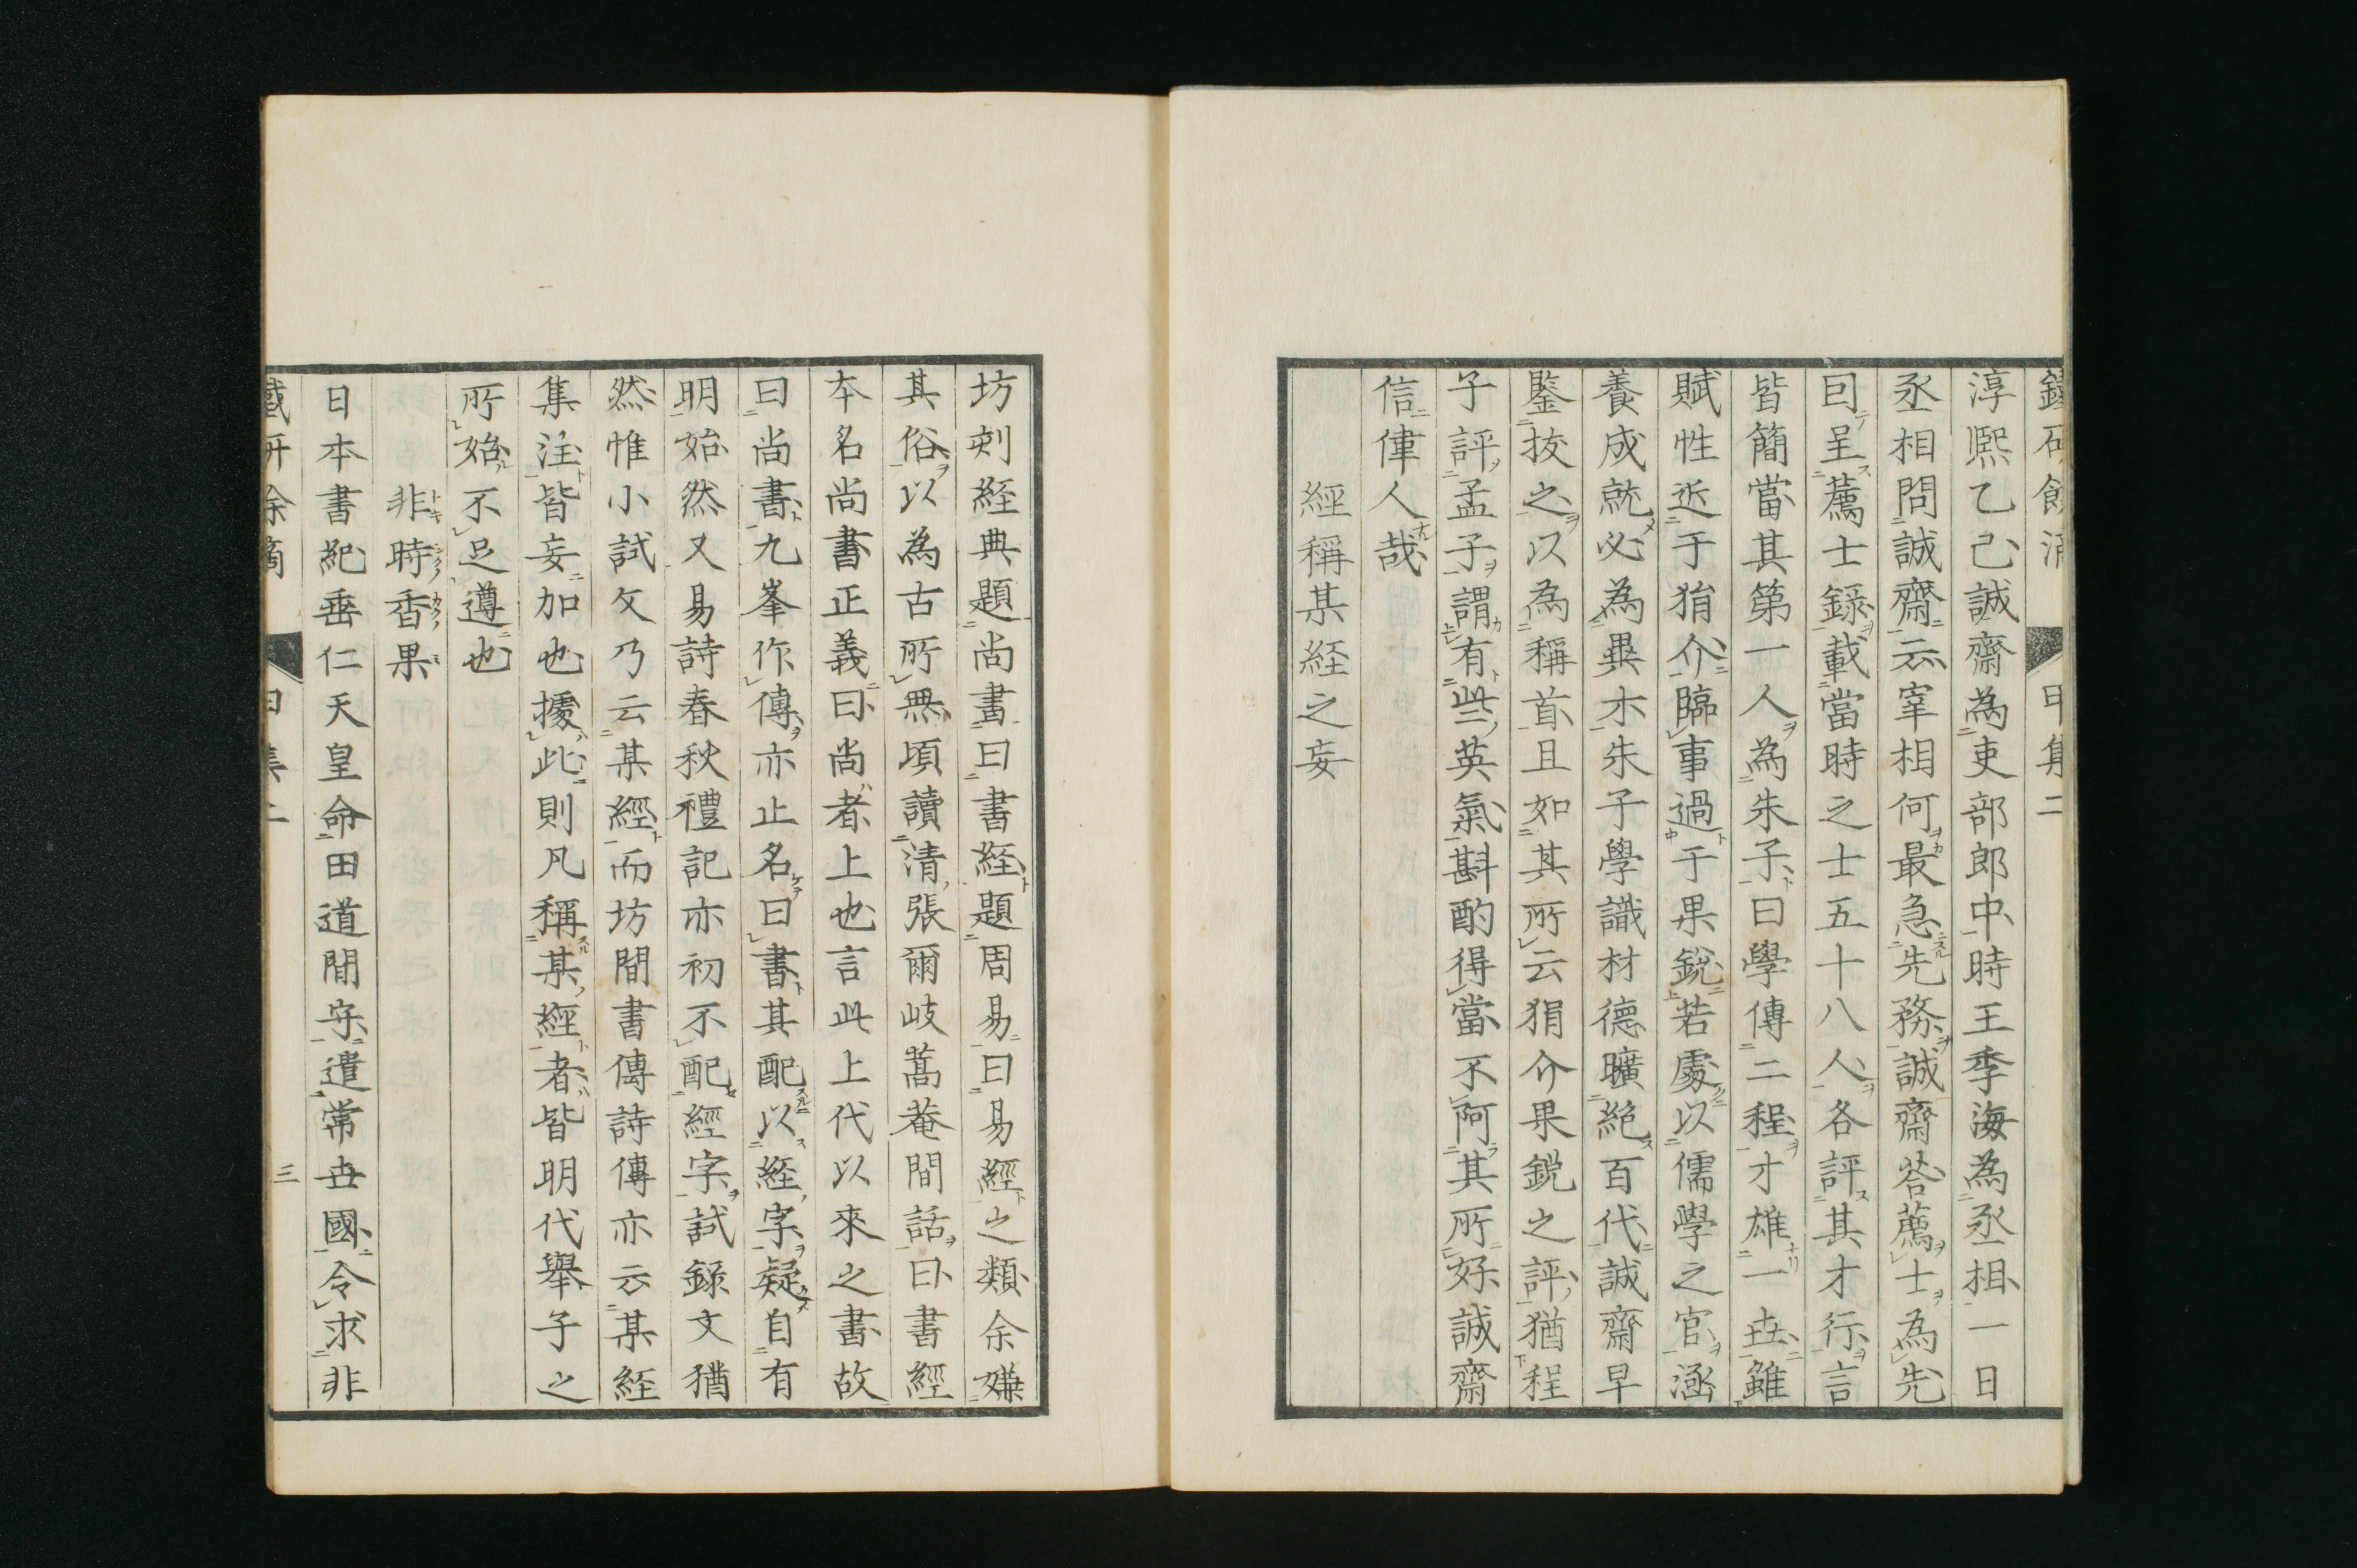 淳熙乙己誠齋為吏部郎中時王季海為丞相一日
丞相問誠齋云宰相何最急先務誠齋荅薦士為先
囙呈薦士録載當時之士五十八人各評其才行言
皆簡當其第一人為朱子曰學傳二程才雄一丗雖
賦性近于狷介臨事過于果銳若處以儒學之官涵
養成就必為異才朱子學識材德曠絕百代誠齋早
鑒拔之以為稱首且如其所云狷介果銳之評猶程
子評孟子謂有些英氣斟酌得當不阿其所好誠齋
信偉人哉
經稱某経之妄
坊刻經典題尚書曰書経題周易曰易經之類余嫌
其俗以為古所無頃讀清張爾岐蒿菴閒話曰書經
本名尚書正義曰尚者上也言此上代以來之書故
曰尚書九峯作傳亦止名曰書其配以経字疑自有
明始然又易詩春秋禮記亦初不配經字試録文猶
然惟小試文乃云某經而坊間書傳詩傳亦云某経
集注皆妄加也據此則凡稱某經者皆明代舉子之
所始不足遵也
非時香果
トキシクノカクノミ
日本書紀垂仁天皇命田道間守遣常丗國令求非
三